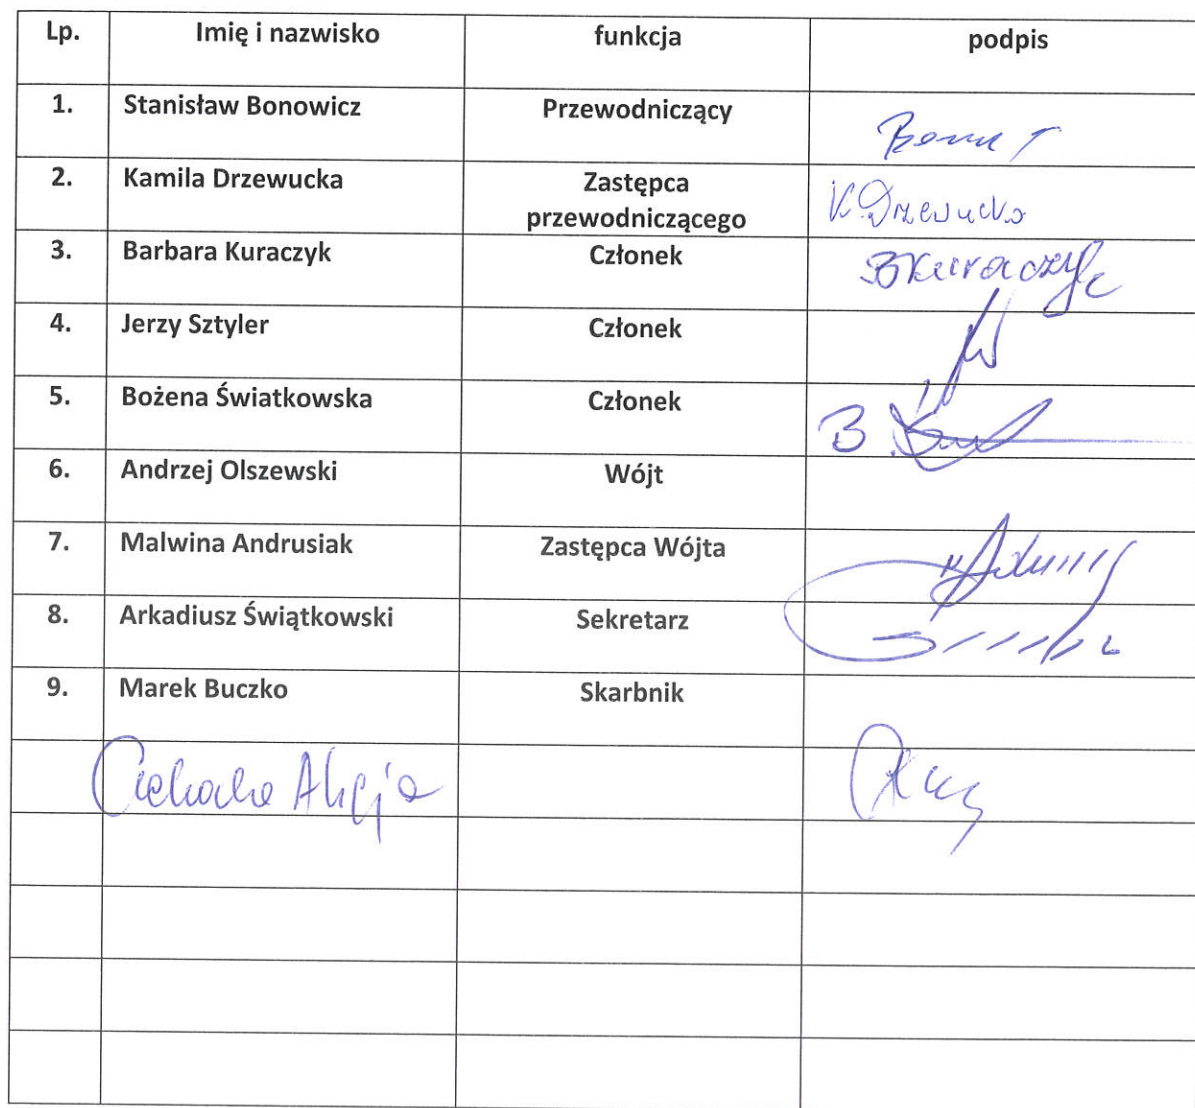 Lp. Imię i nazwisko funkcja podpis
1. Stanisław Bonowicz Przewodniczący
2. Kamila Drzewucka Zastępca
przewodniczącego K. Drzewucka
3. Barbara Kuraczyk Członek BKuraczyk
4. Jerzy Sztyler Członek
5. Bożena Światkowska Członek B.
6. Andrzej Olszewski Wójt
7. Malwina Andrusiak Zastępca Wójta
8. Arkadiusz Świątkowski Sekretarz
9. Marek Buczko Skarbnik
Alicja